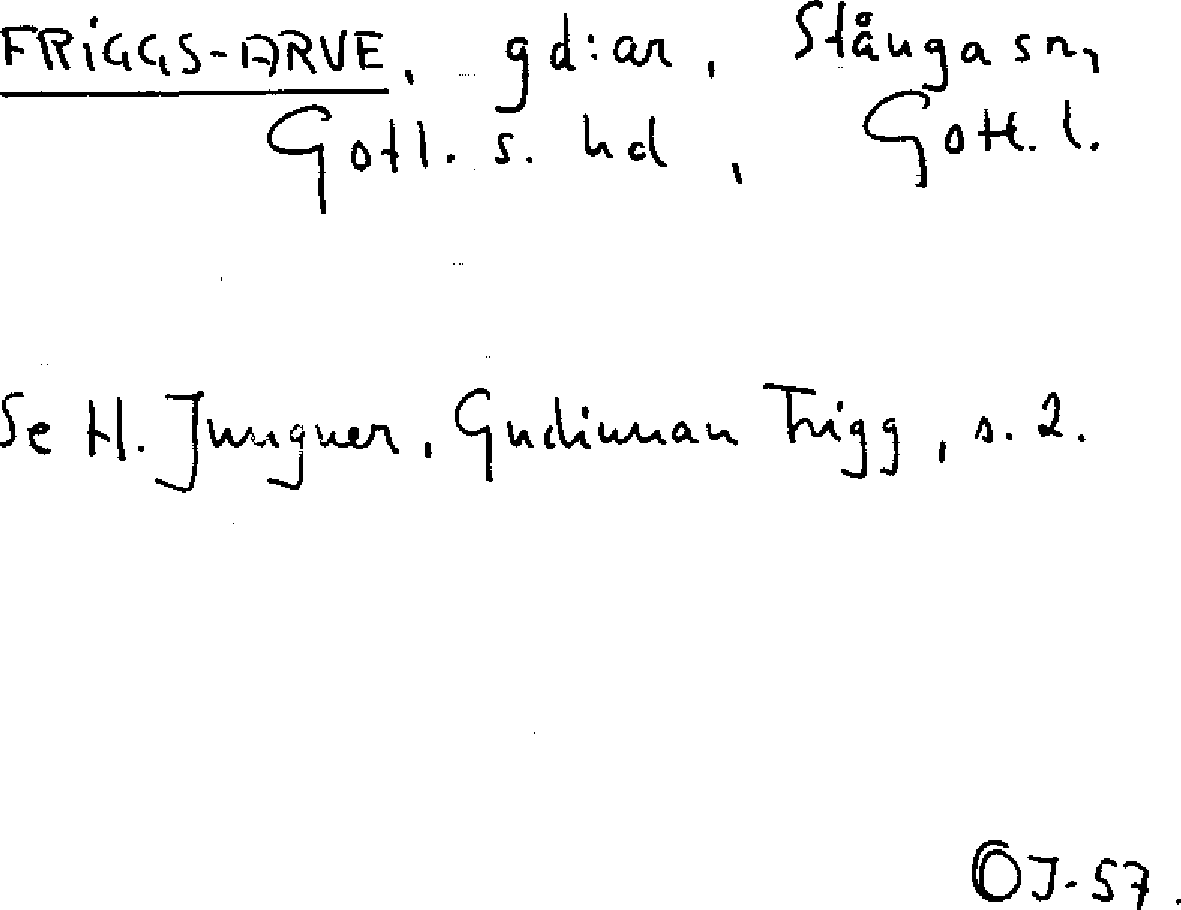 FRIGGS-ARVE, gd:ar, Stånga sn,
Gotl. s. hd, Gotl. l.
Se H. Jungner, Gudinnan Frigg, s. 2.
OJ-57.